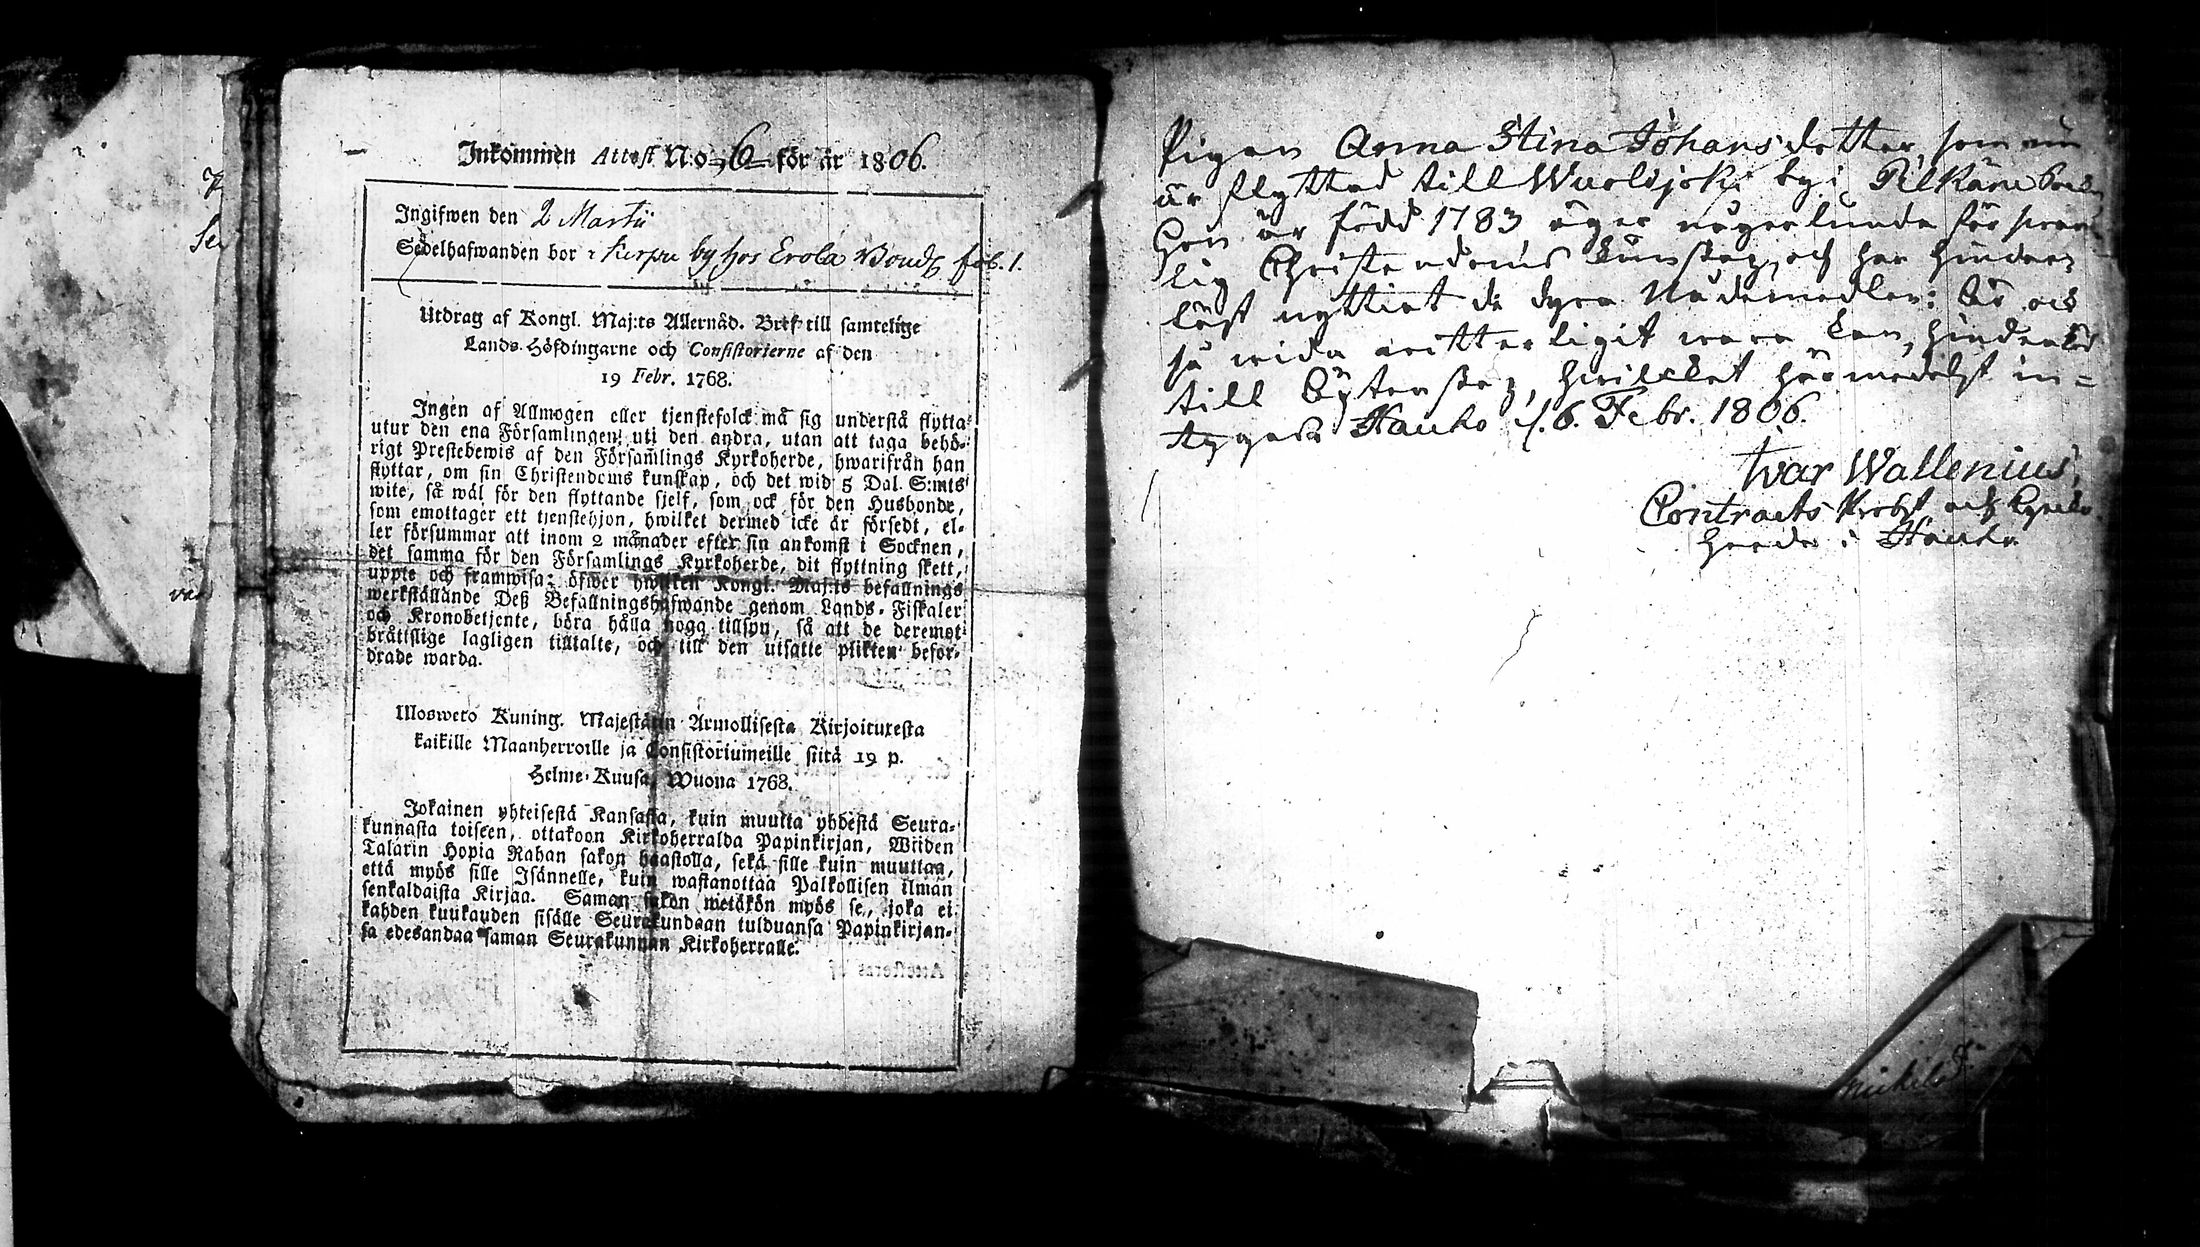 Inkommen Attest N:o 6 för år 1806.
Ingifwen den 2 Martii
Sedelhafwanden bor i Kirpu by hos Erola Bonde fol. 1.
Utdrag af Kongl. Maj:ts Allernåd. Bref till samtelige
Lands-Höfdingarne och Consistorierne af den
19 Febr. 1768.
Ingen af Allmogen eller tjenstefolck må sig understå flytta
utur den ena Församlingen uti den andra, utan att taga behö-
rigt Prestebewis af den Församlings Kyrkoherde, hwarifrån han
flyttar, om sin Christendoms kunskap, och det wid 5 Dal. S:mts
wite, så wäl för den flyttande sjelf, som ock för den Husbonde,
som emottager ett tjenstehjon, hwilket dermed icke är försedt, el-
ler försummar att inom 2 månader efter sin ankomst i Socknen,
det samma för den Församlings Kyrkoherde, dit flyttning skett,
uppte och framwisa; öfwer hwilken Kongl. Maj:ts befallnings
werkställande Deß Befallningshafwande genom Lands-Fiskaler
och Kronobetjente, böra hålla noga tillsyn, så att de deremot
bråtislige lagligen tilltalte, och till den utsatte plikten befor-
drade warda.
Uloswero Kuning. Majestätin Armollisesta Kirjoituxesta
kaikille Maanherroille ja Consistoriumeille siitä 19 p.
Helme-Kuusa, Wuona 1768.
Jokainen yhteisestä Kansasta, kuin muutta yhdestä Seura-
kunnasta toiseen, ottakoon Kirkoherralda Papinkirjan, Wiiden
Talarin Hopia Rahan sakon haastolla, sekä sille kuin muuttaa,
että myös sille Isännelle, kuin wastanottaa Palkollisen ilman
senkaldaista Kirjaa. Saman sakon wetäkön myös se, joka ei
kahden kuukauden sisälle Seurakundaan tulduansa Papinkirjan-
sa edesandaa saman Seurakunnan Kirkoherralle.
Pigan Anna Stina Johansdotter, som nu
är flyttad till Wuolijoki by i Pelkäne
Hon är född 1783 äger någorlunda
lig Christendoms kunskap, och har hinder-
löst nyttiat de dyra Nådemedlen: är ock
så wida witterligit wara kan, hinderlös
till Ächtenskap, hwilcket härmedelst in-
tygas Hauho d. 6. Febr. 1806.
Ivar Wallenius,
Contracts Probst och Kyrko
herde i Hauho